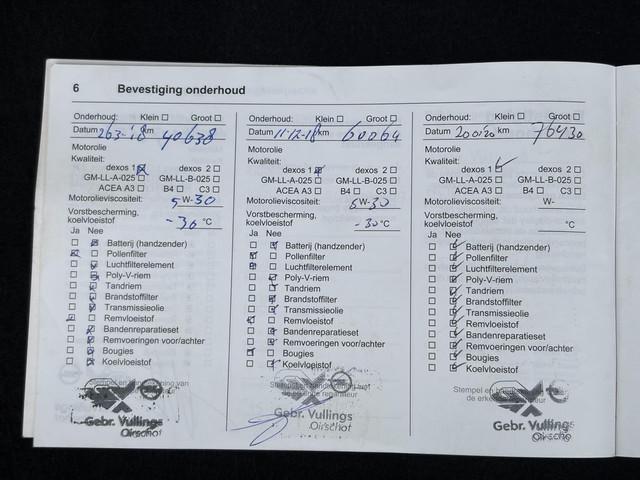 6 Bevestiging onderhoud
Onderhoud: Klein Groot
Datum 26-3-'18 km 40638
Motorolie
Kwaliteit:
dexos 1 dexos 2
GM-LL-A-025 GM-LL-B-025
ACEA A3 B4 C3
Motorolieviscositeit: 5 W-30
Vorstbescherming,
koelvloeistof -30 °C
Ja Nee
Batterij (handzender)
Pollenfilter
Luchtfilterelement
Poly-V-riem
Tandriem
Brandstoffilter
Transmissieolie
Remvloeistof
Bandenreparatieset
Remvoeringen voor/achter
Bougies
Koelvloeistof
Gebr. Vullings
Oirschot
Onderhoud: Klein Groot
Datum 11-12-18 km 60064
Motorolie
Kwaliteit:
dexos 1 dexos 2
GM-LL-A-025 GM-LL-B-025
ACEA A3 B4 C3
Motorolieviscositeit: 5 W-30
Vorstbescherming,
koelvloeistof -30 °C
Ja Nee
Batterij (handzender)
Pollenfilter
Luchtfilterelement
Poly-V-riem
Tandriem
Brandstoffilter
Transmissieolie
Remvloeistof
Bandenreparatieset
Remvoeringen voor/achter
Bougies
Koelvloeistof
Gebr. Vullings
Oirschot
Onderhoud: Klein Groot
Datum km 76430
Motorolie
Kwaliteit:
dexos 1 dexos 2
GM-LL-A-025 GM-LL-B-025
ACEA A3 B4 C3
Motorolieviscositeit: W-
Vorstbescherming,
koelvloeistof °C
Ja Nee
Batterij (handzender)
Pollenfilter
Luchtfilterelement
Poly-V-riem
Tandriem
Brandstoffilter
Transmissieolie
Remvloeistof
Bandenreparatieset
Remvoeringen voor/achter
Bougies
Koelvloeistof
Gebr. Vullings